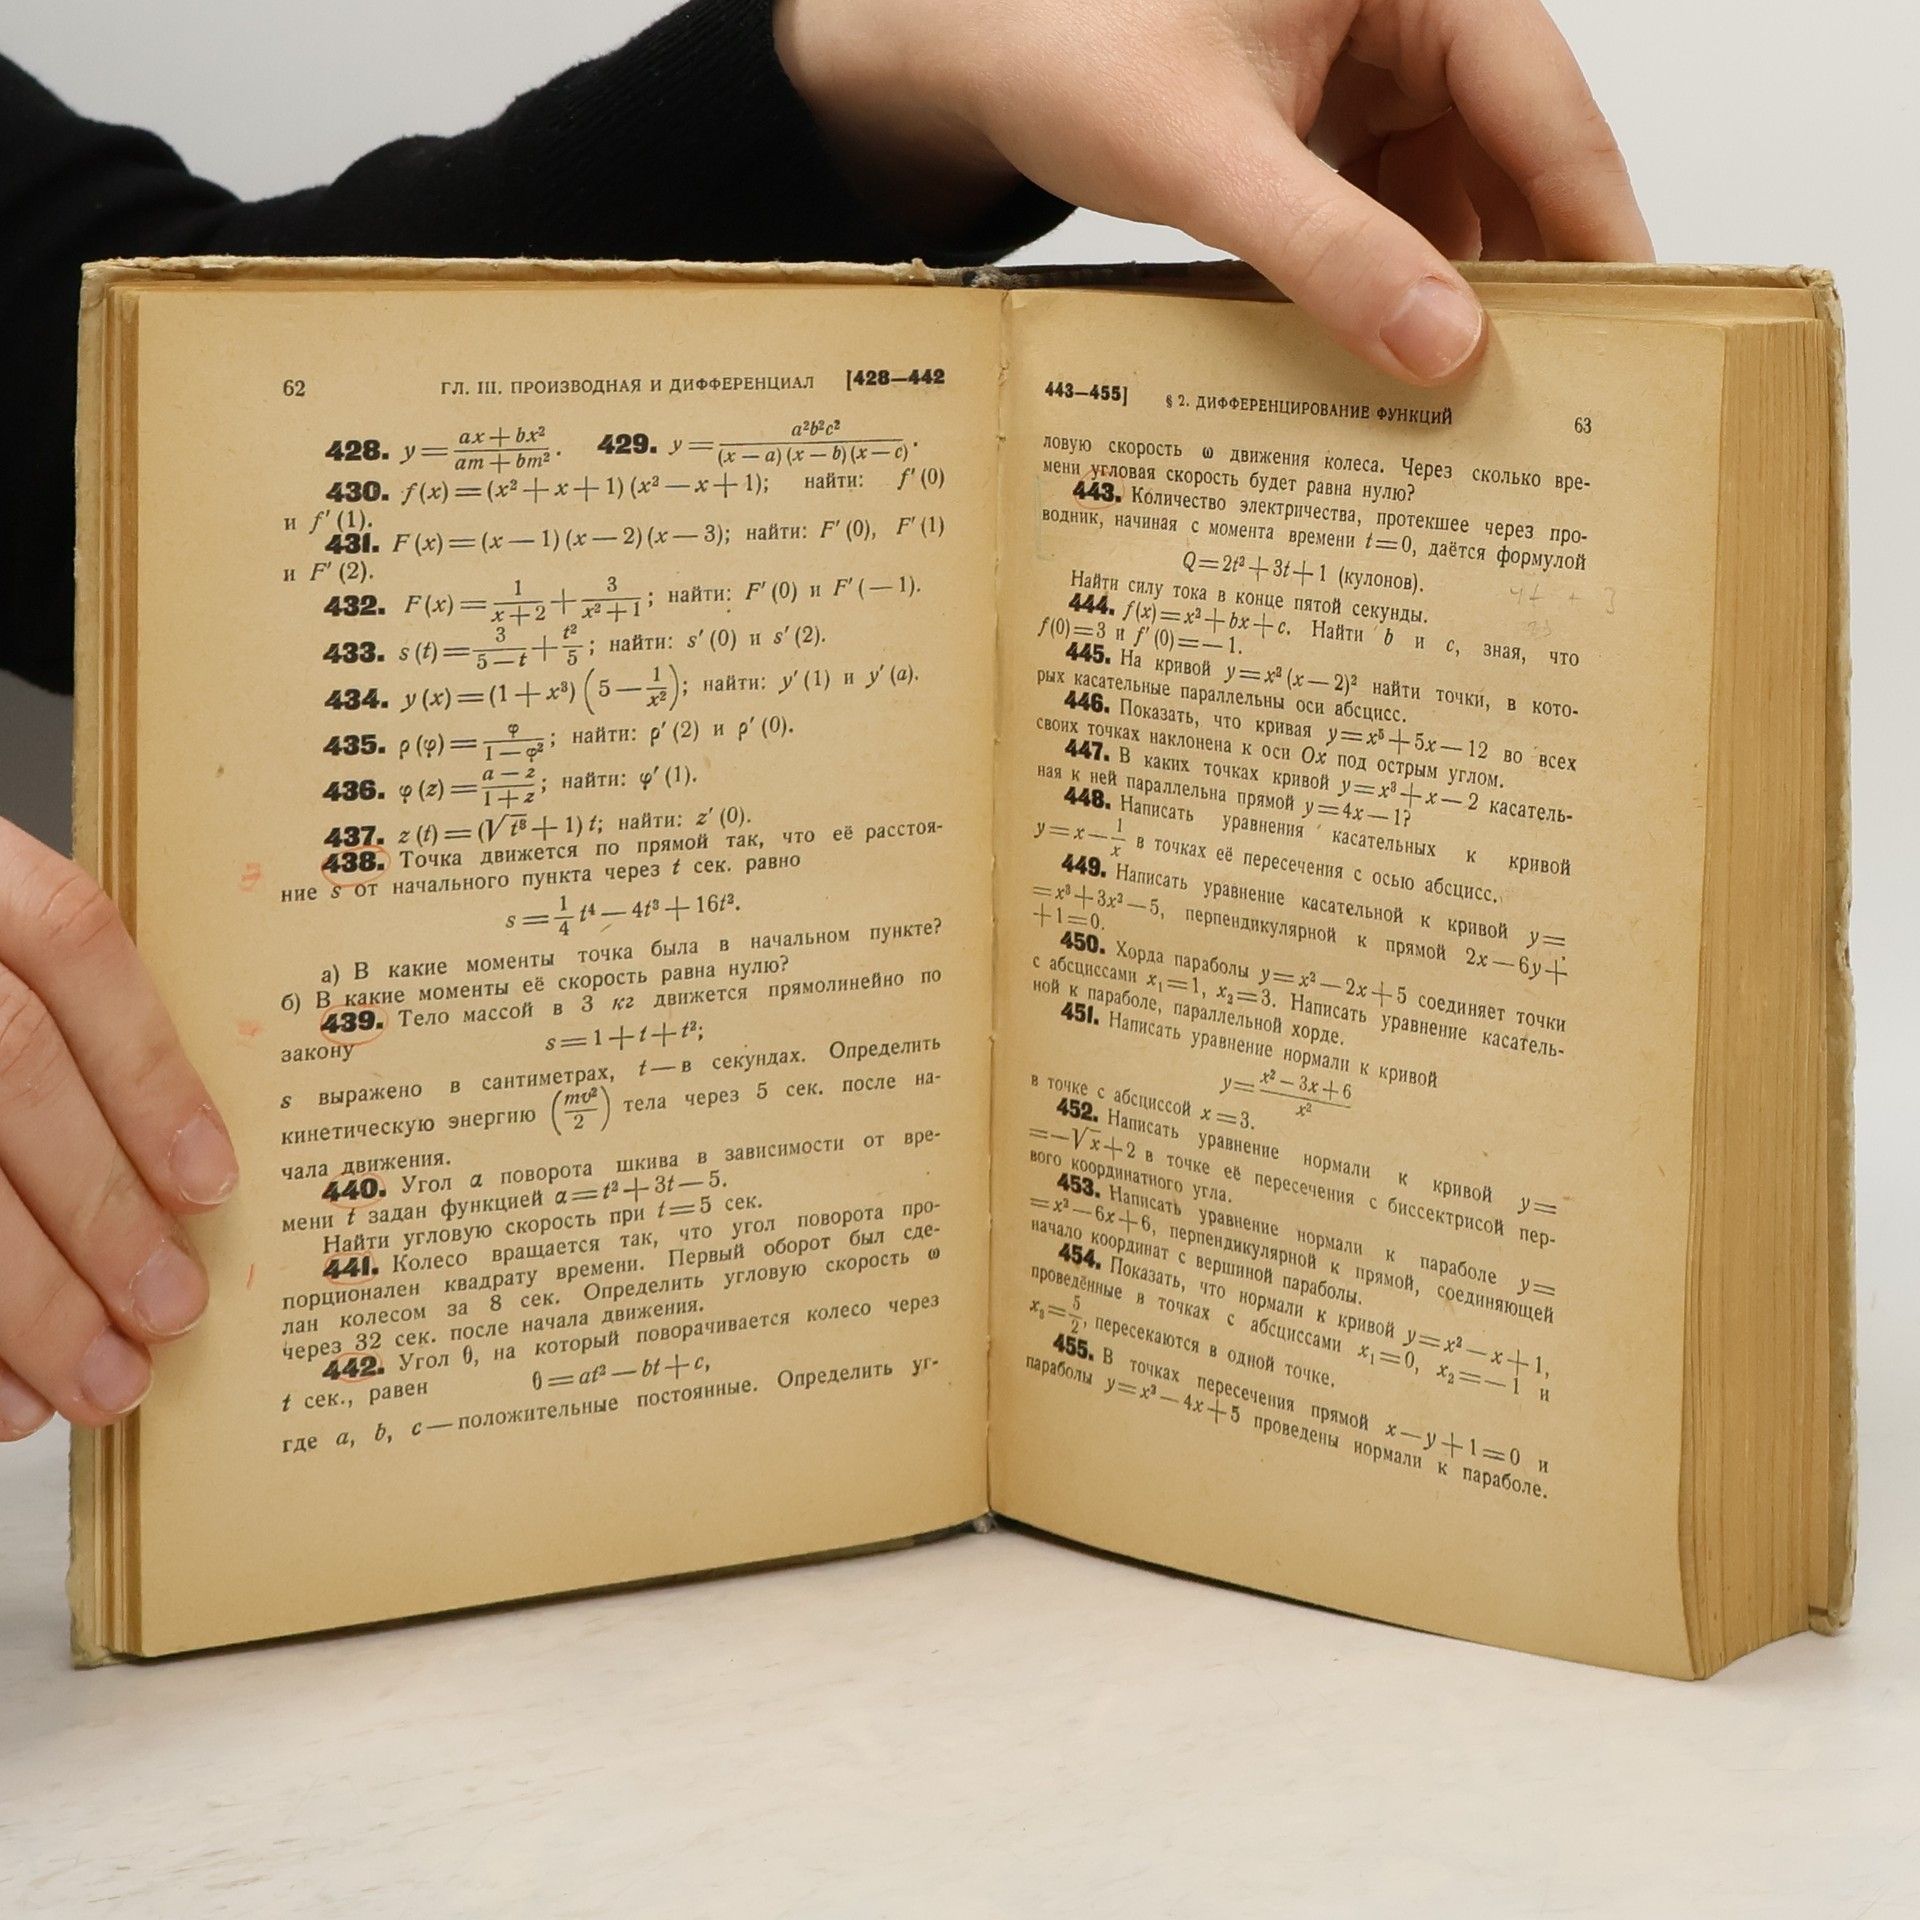 62 ГЛ. III. ПРОИЗВОДНАЯ И ДИФФЕРЕНЦИАЛ [428—442
428. y = (ax + bx²)/(am + bm²). 429. y = a²b²c²/((x — a)(x — b)(x — c)).
430. f(x) = (x² + x + 1)(x² — x + 1); найти: f′(0)
и f′(1).
431. F(x) = (x — 1)(x — 2)(x — 3); найти: F′(0), F′(1)
и F′(2).
432. F(x) = 1/(x + 2) + 3/(x² + 1); найти: F′(0) и F′(— 1).
433. s(t) = 3/(5 — t) + t²/5; найти: s′(0) и s′(2).
434. y(x) = (1 + x³)(5 — 1/x²); найти: y′(1) и y′(a).
435. ρ(φ) = φ/(1 — φ²); найти: ρ′(2) и ρ′(0).
436. φ(z) = (a — z)/(1 + z); найти: φ′(1).
437. z(t) = (√t³ + 1) t; найти: z′(0).
438. Точка движется по прямой так, что её расстоя-
ние s от начального пункта через t сек. равно
s = 1/4 t⁴ — 4t³ + 16t².
а) В какие моменты точка была в начальном пункте?
б) В какие моменты её скорость равна нулю?
439. Тело массой в 3 кг движется прямолинейно по
закону
s = 1 + t + t²;
s выражено в сантиметрах, t — в секундах. Определить
кинетическую энергию (mv²/2) тела через 5 сек. после на-
чала движения.
440. Угол α поворота шкива в зависимости от вре-
мени t задан функцией α = t² + 3t — 5.
Найти угловую скорость при t = 5 сек.
441. Колесо вращается так, что угол поворота про-
порционален квадрату времени. Первый оборот был сде-
лан колесом за 8 сек. Определить угловую скорость ω
через 32 сек. после начала движения.
442. Угол θ, на который поворачивается колесо через
t сек., равен
θ = at² — bt + c,
где a, b, c — положительные постоянные. Определить уг-
443—455] § 2. ДИФФЕРЕНЦИРОВАНИЕ ФУНКЦИЙ 63
ловую скорость ω движения колеса. Через сколько вре-
мени угловая скорость будет равна нулю?
443. Количество электричества, протекшее через про-
водник, начиная с момента времени t = 0, даётся формулой
Q = 2t² + 3t + 1 (кулонов).
Найти силу тока в конце пятой секунды.
4t + 3
23
444. f(x) = x² + bx + c. Найти b и c, зная, что
f(0) = 3 и f′(0) = — 1.
445. На кривой y = x²(x — 2)² найти точки, в кото-
рых касательные параллельны оси абсцисс.
446. Показать, что кривая y = x⁵ + 5x — 12 во всех
своих точках наклонена к оси Ox под острым углом.
447. В каких точках кривой y = x³ + x — 2 касатель-
ная к ней параллельна прямой y = 4x — 1?
448. Написать уравнения касательных к кривой
y = x — 1/x в точках её пересечения с осью абсцисс.
449. Написать уравнение касательной к кривой y =
= x³ + 3x² — 5, перпендикулярной к прямой 2x — 6y +
+ 1 = 0.
450. Хорда параболы y = x² — 2x + 5 соединяет точки
с абсциссами x₁ = 1, x₂ = 3. Написать уравнение касатель-
ной к параболе, параллельной хорде.
451. Написать уравнение нормали к кривой
y = (x² — 3x + 6)/x²
в точке с абсциссой x = 3.
452. Написать уравнение нормали к кривой y =
= — √x + 2 в точке её пересечения с биссектрисой пер-
вого координатного угла.
453. Написать уравнение нормали к параболе y =
= x² — 6x + 6, перпендикулярной к прямой, соединяющей
начало координат с вершиной параболы.
454. Показать, что нормали к кривой y = x² — x + 1,
проведённые в точках с абсциссами x₁ = 0, x₂ = — 1 и
x₃ = 5/2, пересекаются в одной точке.
455. В точках пересечения прямой x — y + 1 = 0 и
параболы y = x² — 4x + 5 проведены нормали к параболе.